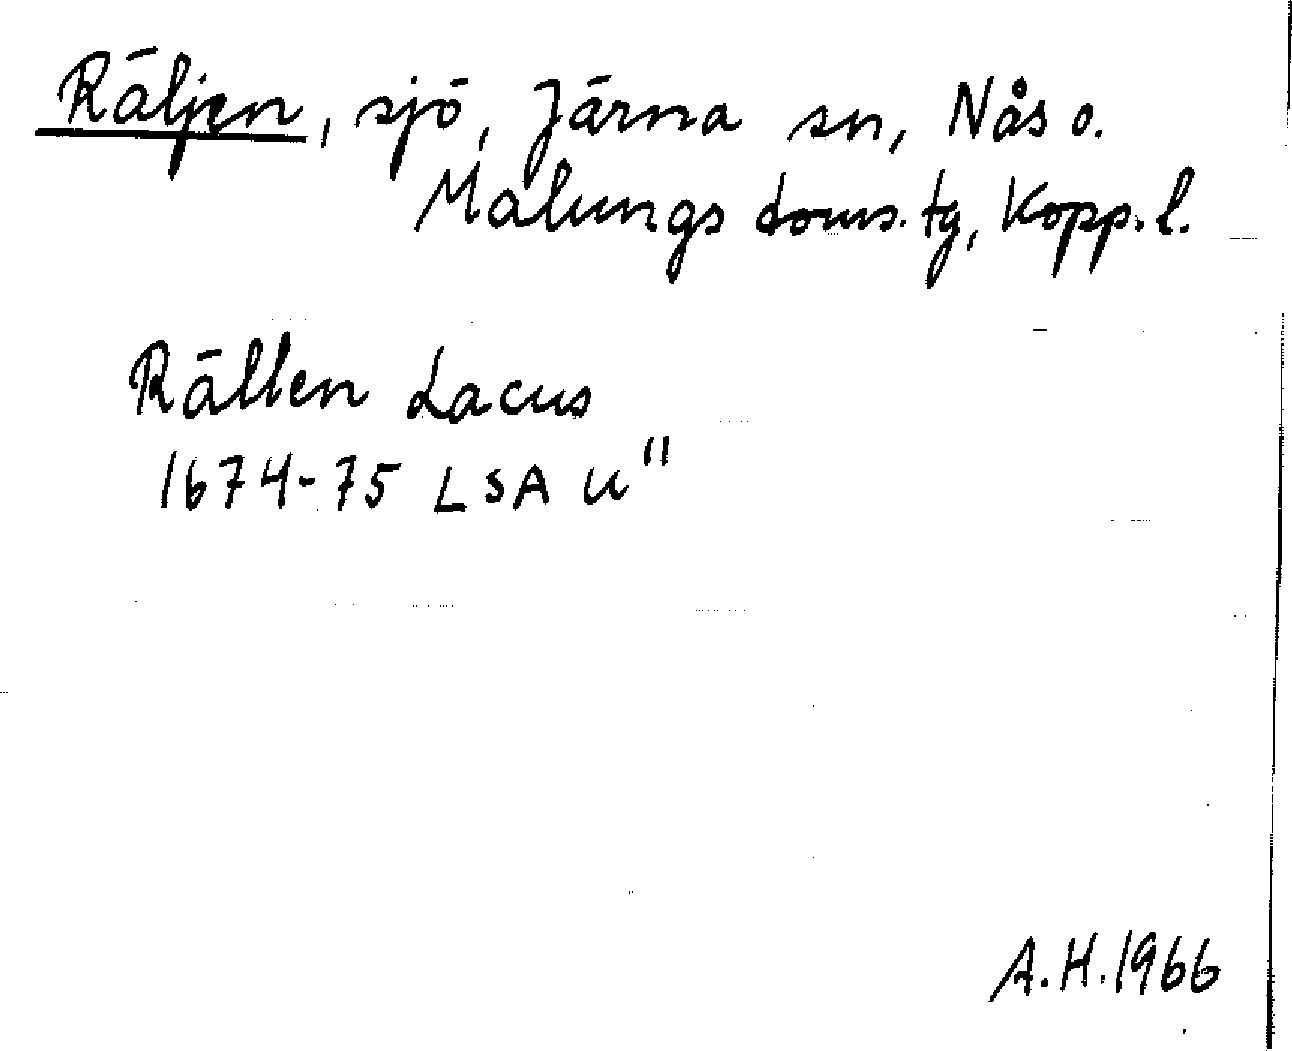 Räljen, sjö, Järna sn, Nås o.
Malungs doms. tg, Kopp. l.
Rällen Lacus
1674-75 LSA U"
A.H. 1966